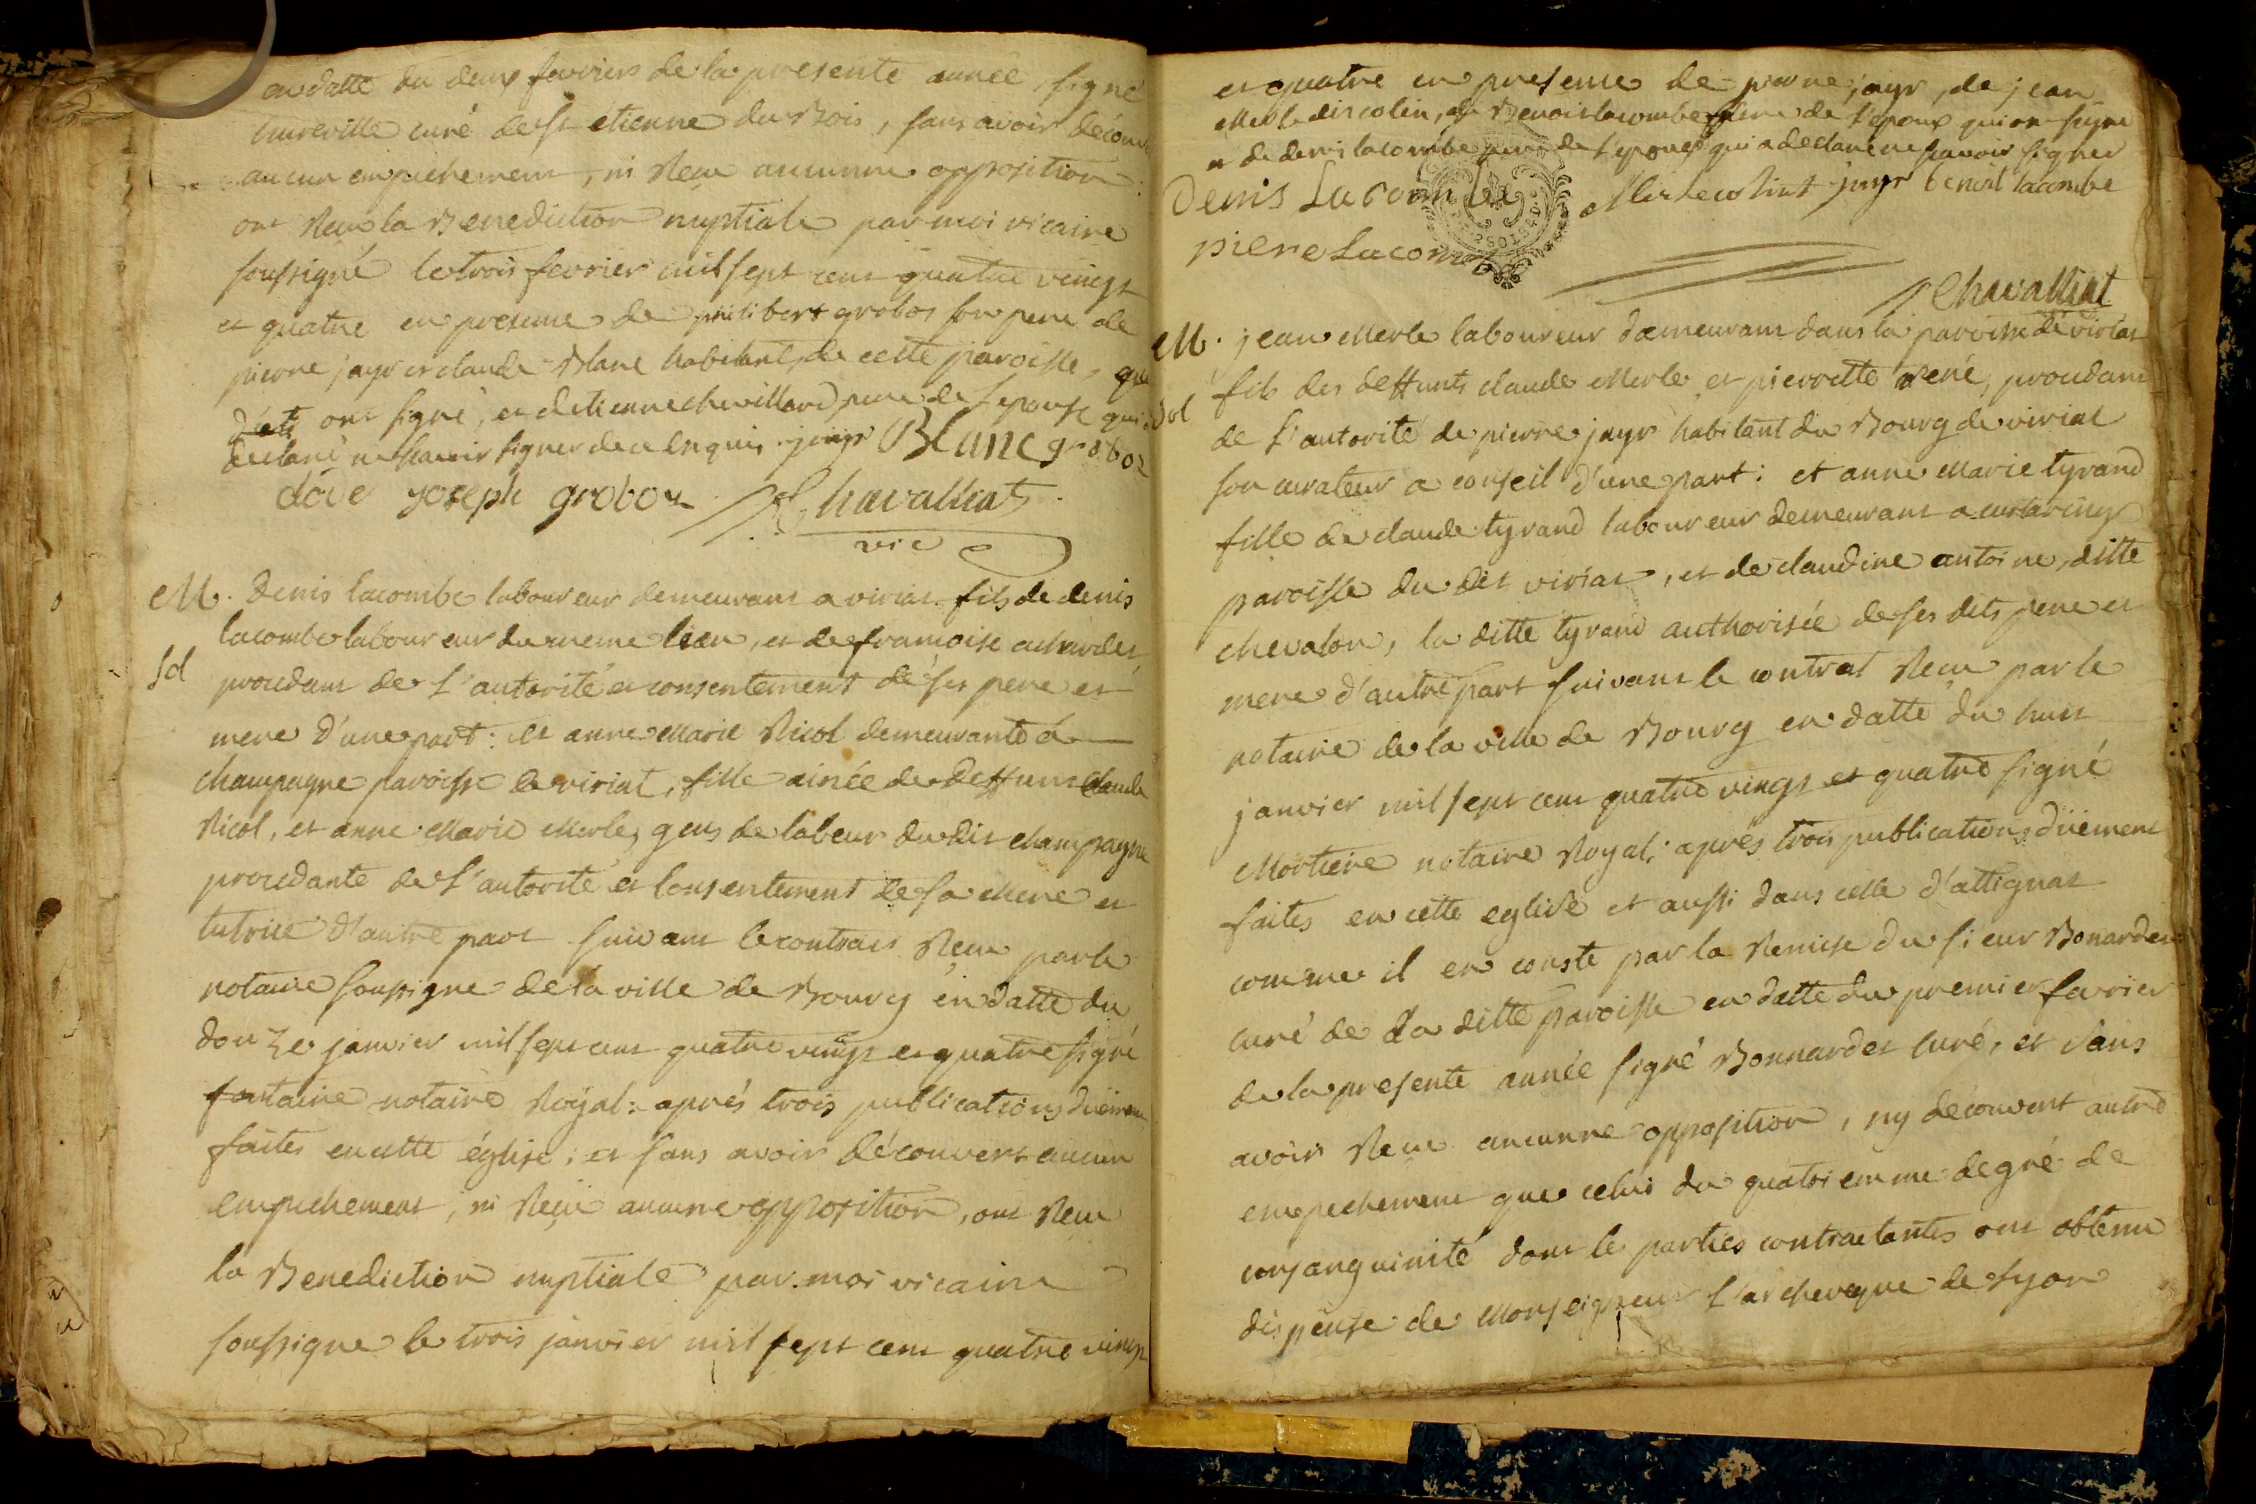 en datte du deux fevriers de la presente année signé
curé de st etienne du Bois, sans avoir decouvert
aucun empechement, ni Reçu aucunne opposition
ont Reçu la Benediction nuptiale par moi vicaire
soussigné le trois fevrier mil sept cent quatre vingt
et quatre en presence de philibert grobos son pere de
pierre jayr et claude Blanc habitants de cette paroisse, qui
ont signé, et d'etienne chevillard pere de l'epouse qui a
declaré ne scavoir signer de ce enquis. jayr Blanc groboz
joseph groboz Chavalliat
vic
M. Denis lacombe laboureur demeurant a viriat fils de denis
lacombe laboureur du meme lieu, et de francoise
procedant de l'autorité et consentement de ses pere et
mere d'une part: et anne Marie Nicol demeurante à
champagne paroisse de viriat, fille ainée de deffunt Claude
Nicol, et anne Marie Merle, gens de labeur du dit champagne
procedante de l'autorité et consentement de sa mere et
tutrice d'autre part suivant le contrat Reçu par le
notaire soussigne de la ville de Bourg en datte du
douze janvier mil sept cent quatre vingt et quatre signé
fontaine notaire Royal: après trois publications düement
faites en cette église; et sans avoir découvert aucun
empechement, ni Reçü aucune opposition, ont Reçu
la Benediction nuptiale par moi vicaire
soussigne le trois janvier mil sept cent quatre vingt
et quatre en presence de pierre jayr, de jean
Merle dit colin, de Benoit lacombe frere de l'epoux qui ont signé
et de denis lacombe pere de l'epoux qui a declaré ne scavoir signer
Denis Lacombe Merle colint jayr benoit lacombe
piere Lacombe
Chavalliat
M. jean Merle laboureur demeurant dans la paroisse de viriat
fils des deffunts claude Merle et pierrette René, procedant
de l'autorité de pierre jayr habitant du Bourg de viriat
son curateur a conseil d'une part: et anne Marie tyrand
fille de claude tyrand laboureur demeurant a
paroisse du dit viriat, et de claudine antoine, ditte
chevalon, la ditte tyrand authorisée de ses dits pere et
mere d'autre part suivant le contrat Reçu par le
notaire de la ville de Bourg en datte du huit
janvier mil sept cent quatre vingt et quatre signé
Mortiere notaire Royal; après trois publications düement
faites en cette eglise et aussi dans celle d'attignat
comme il en conste par la Remise du sieur Bonardet
curé de la ditte paroisse en datte du premier fevrier
de la presente année signé Bonnardet curé, et sans
avoir Reçu aucunne opposition, ny découvert autre
empechement que celui du quatriemme degré de
consanguinité dont les parties contractantes ont obtenu
dispense de Monseigneur l'archeveque de lyon